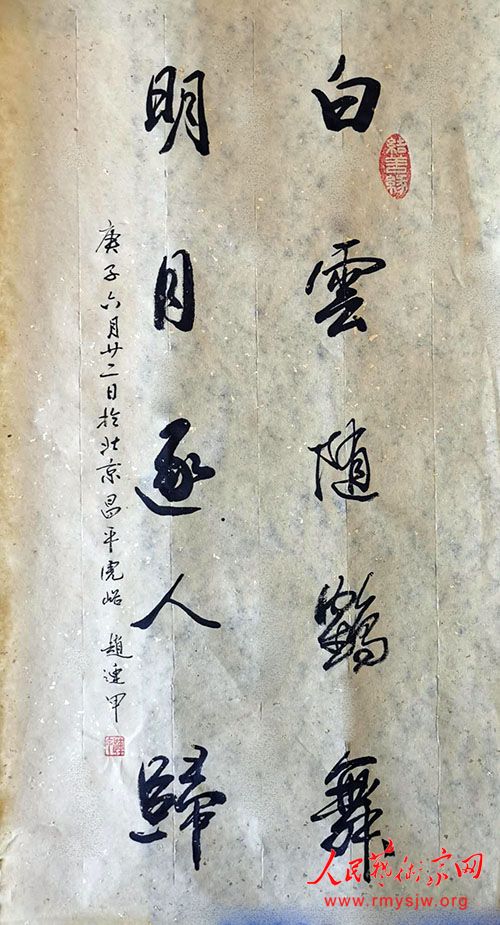 白雲随鶴舞
結善緣
明月逐人歸
庚子六月廿二日於北京昌平虎峪 趙連甲
人民艺术家网
www.rmysjw.org